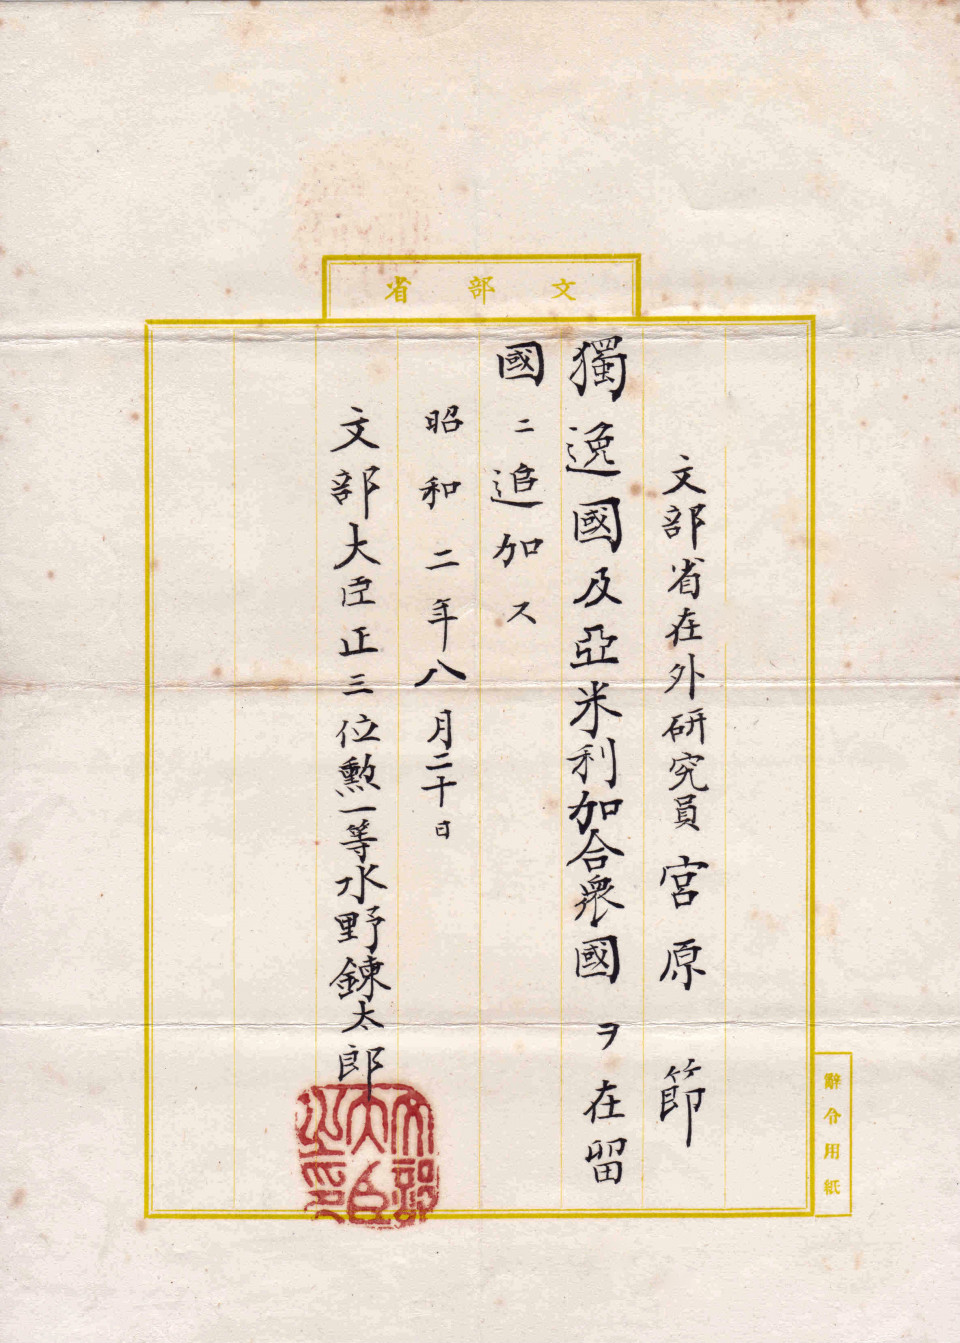 文部省
文部省在外研究員宮原節
獨逸國及亞米利加合衆國ヲ在留
國ニ追加ス
昭和二年八月二十日
文部大臣正三位勲一等水野錬太郎
文部大臣之印
辭令用紙